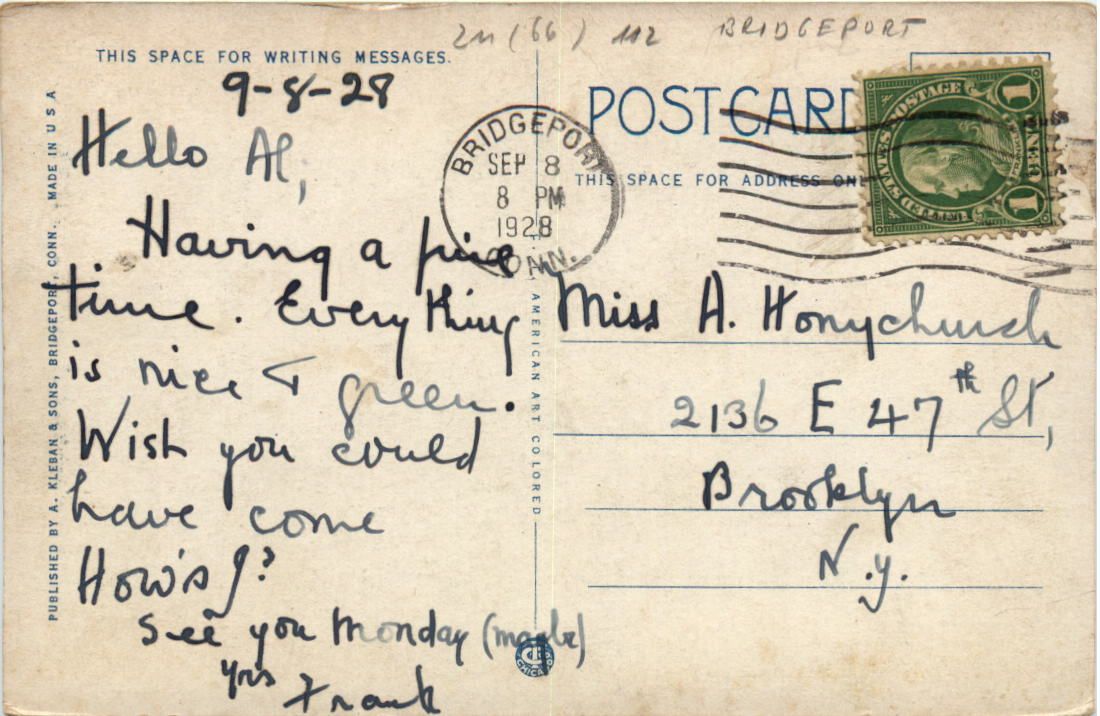 2M (66) 112 BRIDGEPORT
THIS SPACE FOR WRITING MESSAGES.
9-8-28
Hello Al,
Having a fine
time. Everything
is nice & green.
Wish you could
have come
How's J?
See you Monday (maybe)
Yrs
Frank
PUBLISHED BY A. KLEBAN & SONS, BRIDGEPORT, CONN. MADE IN U S A
AMERICAN ART COLORED
CHICAGO
BRIDGEPORT
SEP 8
8 PM
1928
CONN.
POST CARD
THIS SPACE FOR ADDRESS ONLY
UNITED STATES POSTAGE
1 CENT 1
Miss A. Honychurch
2136 E 47th St,
Brooklyn
N.Y.